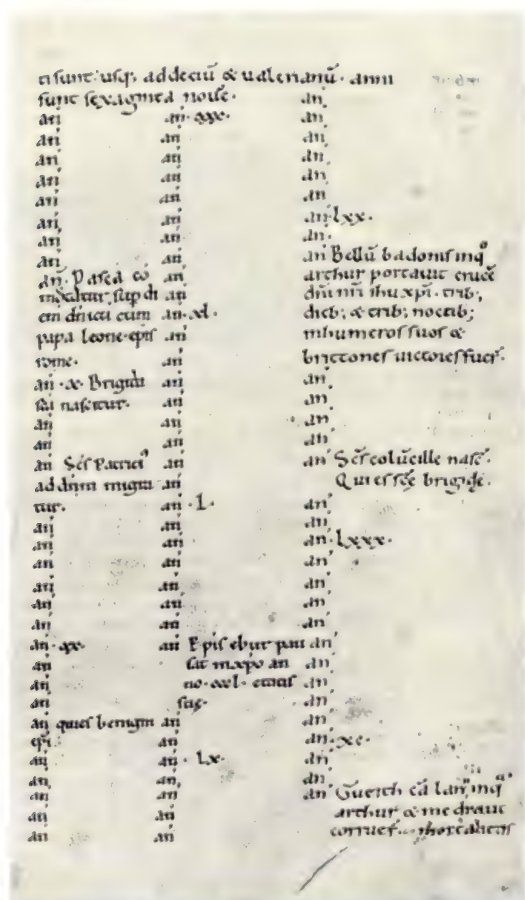 ti sunt. usq; ad deciū & ualerianū. anni
sunt sexaginta noūe.
an̄
an̄
an̄
an̄
an̄
an̄
an̄
an̄
an̄. Pasca cō
mutatur. sup di
em dn̄icū cum
papa leone epis
rome.
an̄. x. Brigida
scā nascitur.
an̄
an̄
an̄ Scs Patriciꝰ
ad dn̄m migra
tur.
an̄
an̄
an̄
an̄
an̄
an̄
an̄. xx.
an̄
an̄
an̄
an̄ quies benigni
epī.
an̄
an̄
an̄
an̄
an̄
an̄. xxx.
an̄
an̄
an̄
an̄
an̄
an̄
an̄
an̄
an̄
an̄. xl.
an̄
an̄
an̄
an̄
an̄
an̄
an̄
an̄
an̄. L.
an̄
an̄
an̄
an̄
an̄
an̄
an̄ Epis̄ ebur pau
sat in xp̄o an
no. cccl. etatis
suę.
an̄
an̄
an̄. Lx.
an̄
an̄
an̄
an̄
an̄
an̄
an̄
an̄
an̄
an̄
an̄ Lxx.
an̄.
an̄ Bellū badonis inqͦ
arthur portauit crucē
dn̄i nr̄i ihu xp̄i. trib;
dieb; & trib; noctib;
in humeros suos &
brittones uictores fuer̄.
an̄
an̄
an̄
an̄
an̄ Scs̄ colūcille nasc̄.
Quies scē brigidę.
an̄
an̄
an̄. Lxxx.
an̄
an̄
an̄
an̄
an̄
an̄
an̄
an̄
an̄
an̄. xc.
an̄
an̄
an̄ Gueith cā lann inqͣ
arthur & medraut
corruer̄. & mortalitas